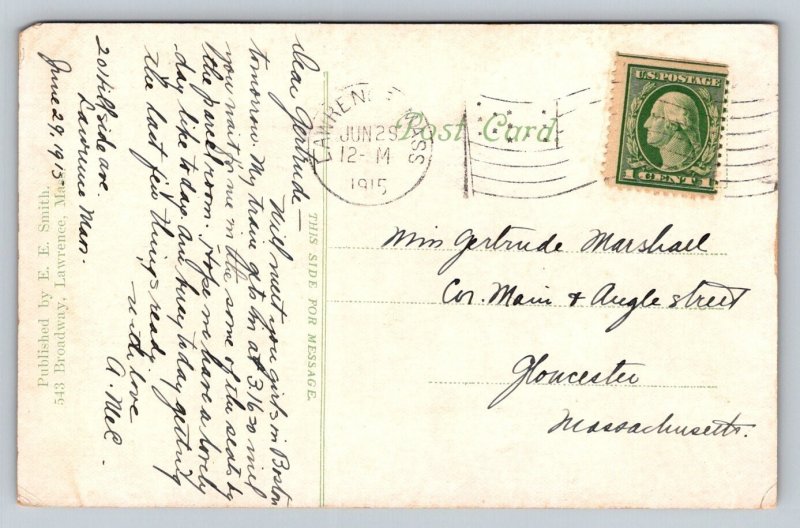 20 Hillside ave.
Lawrence Mass.
June 29, 1915.
Dear Gertrude—
Will meet you girls in Boston
tomorrow. My train gets in at 3.16 so will
you wait for me in the some of the seats by
the panel room. Hope we have a lovely
day like to-day. Am busy to-day getting
the last few things ready.
with love
A. McC.
Published by E. E. Smith.
543 Broadway, Lawrence, Mass.
THIS SIDE FOR MESSAGE.
Post Card
LAWRENCE MASS
JUN 29
12-M
1915
U.S. POSTAGE
1 CENT 1
Miss Gertrude Marshall
Cor. Main & Angle street
Gloucester
Massachusetts.